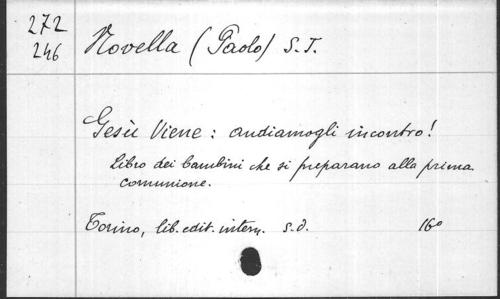 272
246
Novella (Paolo) S.J.
Gesù Viene: andiamogli incontro!
Libro dei bambini che si preparano alla prima
comunione.
Torino, lib. edit. intern. s.d. 16º